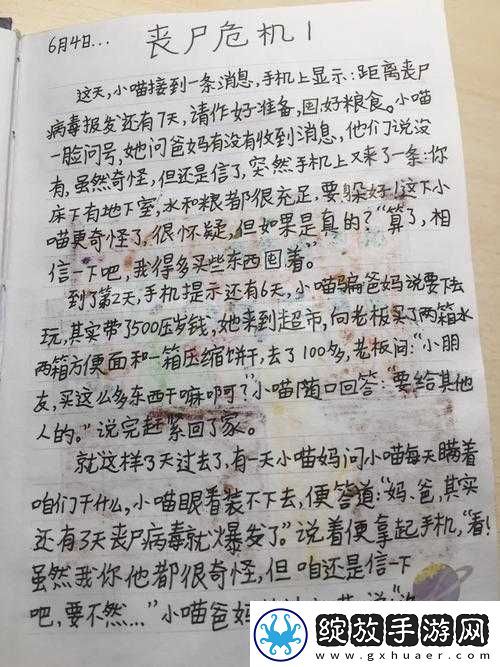 6月4日...
丧尸危机1
这天,小喵接到一条消息,手机上显示:距离丧尸
病毒报发还有7天,请作好准备,囤好粮食。小喵
一脸问号,她问爸妈有没有收到消息,他们说没
有,虽然奇怪,但还是信了,突然手机上又来了一条:你
床下有地下室,水和粮都很充足,要躲好!这下小
喵更奇怪了,很怀疑,但如果是真的?“算了,相
信一下吧,我得多买些东西囤着。”
到了第2天,手机提示还有6天,小喵骗爸妈说要下去
玩,其实带了500压岁钱,她来到超市,向老板买了两箱水
两箱方便面和一箱压缩饼干,去了100多,老板问:“小朋
友,买这么多东西干嘛啊?”小喵随口回答:“要给其他
人的。”说完赶紧回了家。
就这样3天过去了,有一天小喵妈问小喵每天瞒着
咱们干什么,小喵眼看装不下去,便答道:“妈、爸,其实
还有3天丧尸病毒就爆发了。”说着便拿起手机,“看!
虽然我你他都很奇怪,但咱还是信一下
吧,要不然...”小喵爸妈
绽放手游网
www.gxhuaer.com